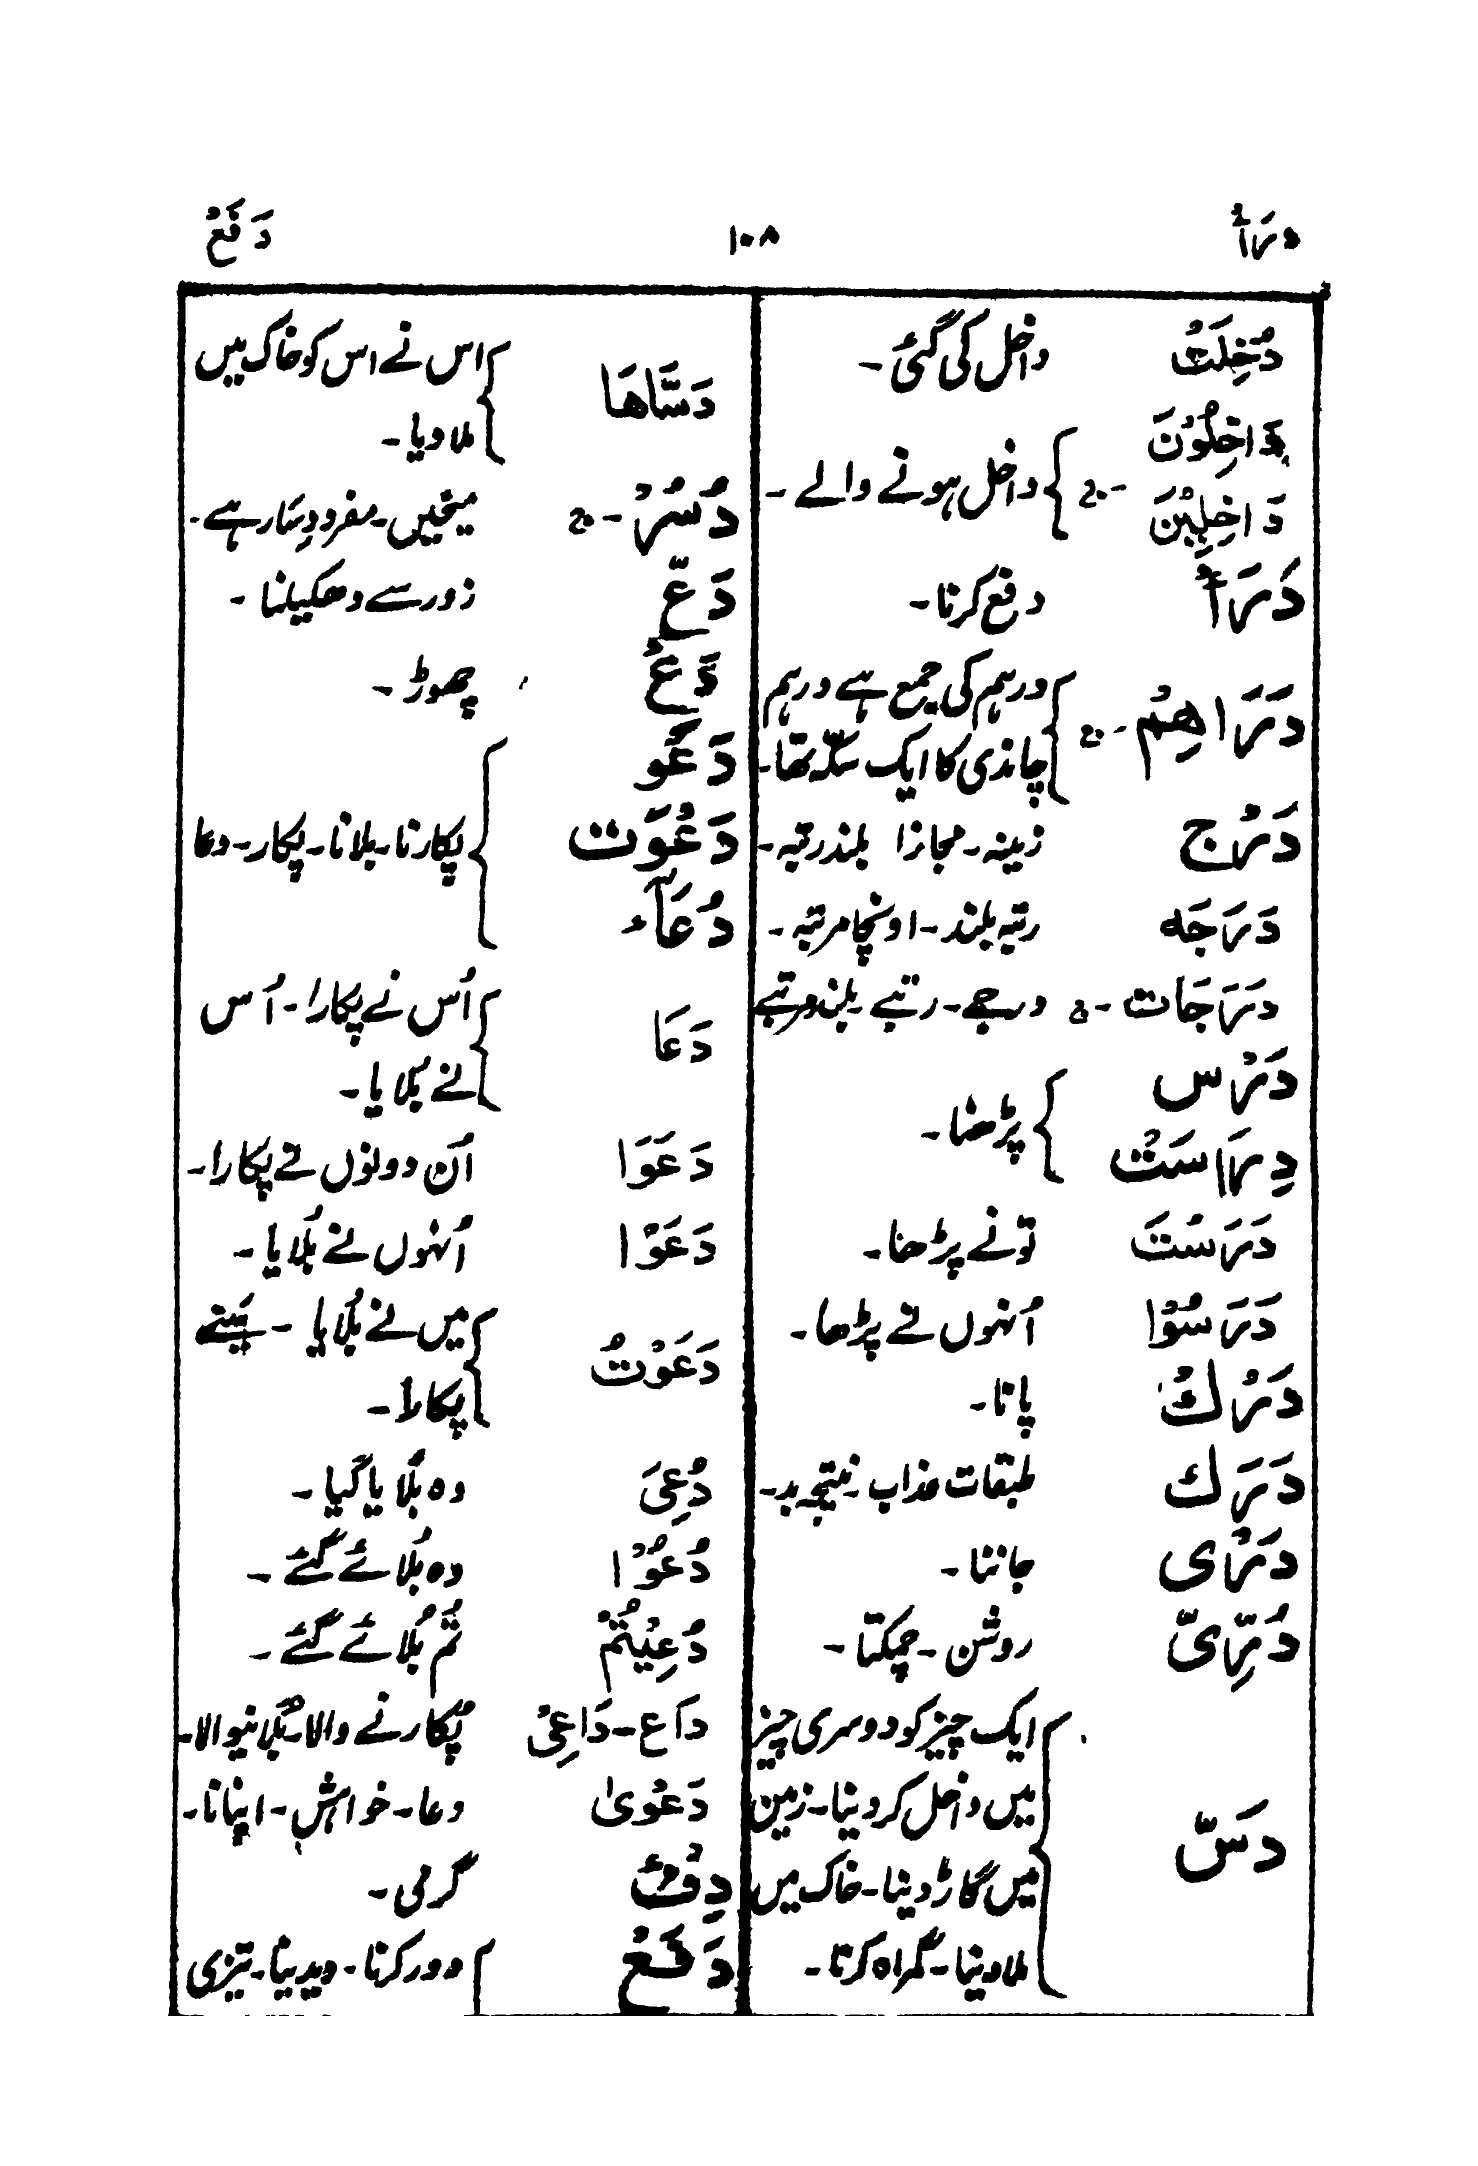 درأ ۱۰۸ دَفَعْ
دُخِلَتْ داخل کی گئی۔
دَاخِلُوْنَ
دَاخِلِیْنَ ۔ج داخل ہونے والے۔
دَرَأَ دفع کرنا۔
دَرَاهِمُ ۔ج درہم کی جمع ہے درہم
چاندی کا ایک سکّہ تھا۔
دَرْج زینہ۔ مجازا بلند رتبہ۔
دَرَجَه رتبہ بلند۔ اونچا مرتبہ۔
دَرَجَات ۔ج درجے۔ رتبے۔ بلند مرتبے
دَرْس
دِرَاسَتْ پڑھنا۔
دَرَسْتَ تونے پڑھا۔
دَرَسُوْا اُنہوں نے پڑھا۔
دَرْك پانا۔
دَرَك طبقات عذاب۔ نتیجہ بد۔
دَرْی جاننا۔
دُرِّیّ روشن۔ چمکتا۔
ایک چیز کو دوسری چیز
میں داخل کر دینا۔ زمین
دسّ
میں گاڑ دینا۔ خاک میں
ملا دینا۔ گمراہ کرنا۔
دَسَّاهَا اس نے اس کو خاک میں
ملا دیا۔
دُسُرْ ۔ج میخیں۔ مفرد دِسَار ہے۔
دَعّ زور سے دھکیلنا۔
دَعْ چھوڑ۔
دَعْو
دَعْوَت پکارنا۔ بلانا۔ پکار۔ دعا
دُعَآء
دَعَا اُس نے پکارا۔ اُس
نے بُلایا۔
دَعَوَا اُن دونوں نے پکارا۔
دَعَوْا اُنہوں نے بُلایا۔
دَعَوْتُ میں نے بُلایا۔ مَیں نے
پکارا۔
دُعِیَ وہ بُلایا گیا۔
دُعُوْا وہ بُلائے گئے۔
دُعِیْتُمْ تُم بُلائے گئے۔
دَاعِ۔ دَاعِیْ پُکارنے والا۔ بُلانیوالا۔
دَعْویٰ دعا۔ خواہش۔ اپنانا۔
دِفْءٌ گرمی۔
دَفَعْ دور کرنا۔ دیدینا۔ تیزی